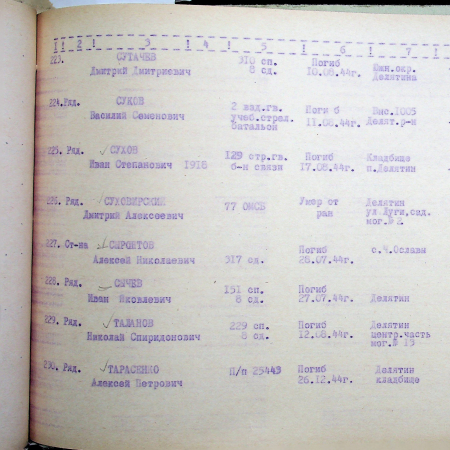 1 ! 2 ! 3 ! 4 ! 5 ! 6 ! 7 !
223. СУГАЧЕВ 310 сп. Погиб Южн.окр.
Дмитрий Дмитриевич 8 сд. 10.08.44г. Делятина
224. Ряд. СУКОВ 2 вад.гв. Погиб Выс.1005
Василий Семенович учеб.стрел. 11.08.44г. Делят.р-н
батальон
225. Ряд. СУХОВ 129 стр.гв. Погиб Кладбище
Иван Степанович 1918 б-н связи 17.08.44г. п.Делятин
226. Ряд. СУХОВИРСКИЙ 77 ОМСБ Умер от Делятин
Дмитрий Алексеевич ран ул.Луги,сад.
мог.№ 2
227. Ст-на СЫРОПТОВ Погиб с.Ч.Ославы
Алексей Николаевич 317 сд. 28.07.44г.
228. Ряд. СЫЧЕВ 151 сп. Погиб
Иван Яковлевич 8 сд. 27.07.44г. Делятин
229. Ряд. ТАЛАНОВ 229 сп. Погиб Делятин
Николай Спиридонович 8 сд. 12.08.44г. центр.часть
мог.№ 13
230. Ряд. ТАРАСЕНКО П/п 25443 Погиб Делятин
Алексей Петрович 26.12.44г. кладбище